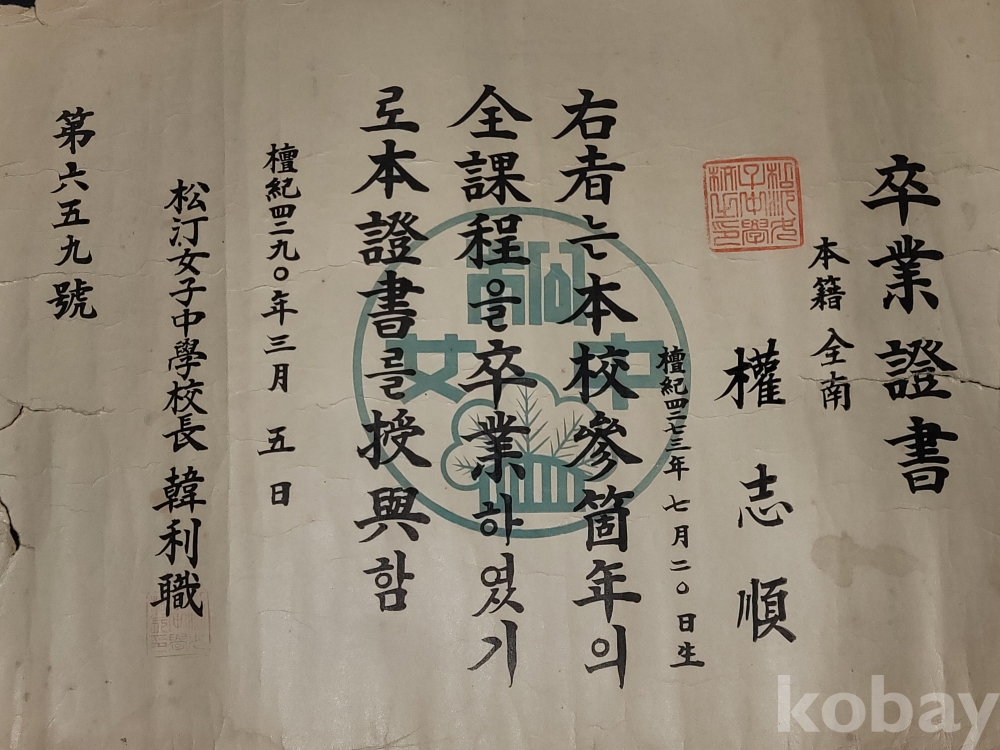 卒業證書
本籍 全南
權志順
檀紀四二七三年七月二〇日生
右者는本校參箇年의
全課程을卒業하였기
로本證書를授與함
檀紀四二九〇年三月五日
松汀女子中學校長 韓利職
第六五九號
女
中
kobay